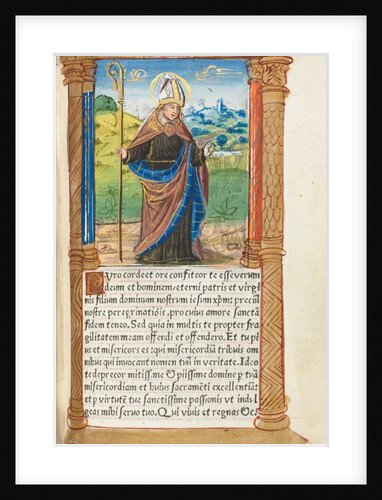 Puro corde et ore confiteor te esse verum
deum et hominem: eterni patris et virgi
nis filium dominum nostrum iesum xp̄m: preciū
nostre peregrinatiōis, pro cuius amore sanctā
fidem teneo. Sed quia in multis te propter fra
gilitatem meam offendi et offendero. Et tu pi
us et misericors es: qui misericordiā tribuis om
nibus qui invocant nomen tuū in veritate. Ideo
te deprecor mitiss. me O piissime domine p tuā
misericordiam et huius sacramēti excellentiā:
et p virtutē tue sanctissime passionis vt indul
geas mihi servo tuo. Qui vivis et regnas